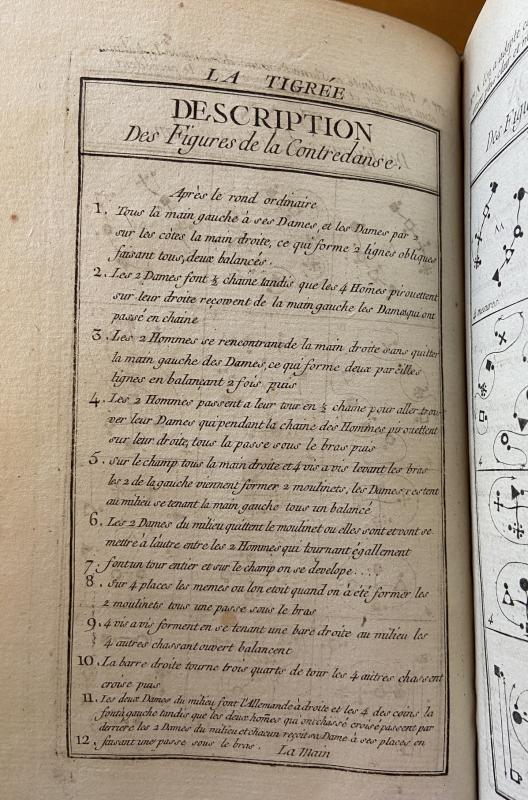 LA TIGRÉE
DESCRIPTION
Des Figures de la Contredanse.
Après le rond ordinaire
1. Tous la main gauche à ses Dames, et les Dames par 2
sur les côtés la main droite, ce qui forme 2 lignes obliques
faisant tous, deux balancés.
2. Les 2 Dames font ½ chaine tandis que les 4 Hom̃es pirouettent
sur leur droite reçowent de la main gauche les Dames qui ont
passé en chaine
3. Les 2 Hommes se rencontrant de la main droite sans quitter
la main gauche des Dames, ce qui forme deux pareilles
lignes en balançant 2 fois puis
4. Les 2 Hommes passent a leur tour en ½ chaine pour aller trou-
ver leur Dames qui pendant la chaine des Hommes pirouettent
sur leur droite, tous la passe sous le bras puis
5. Sur le champ tous la main droite et 4 vis a vis levant les bras
les 2 de la gauche viennent former 2 moulinets, les Dames restent
au milieu se tenant la main gauche tous un balancé
6. Les 2 Dames du milieu quittent le moulinet ou elles sont et vont se
mettre à l'autre entre les 2 Hommes qui tournant égallement
7. font un tour entier et sur le champ on se develope . . . .
8. Sur 4 places les memes ou lon etoit quand on à été former les
2 moulinets tous une passe sous le bras
9. 4 vis a vis forment en se tenant une bare droite au milieu les
4 autres chassant ouvert balancent
10. La barre droite tourne trois quarts de tour les 4 autres chassent
croise puis
11. Les deux Dames du milieu font l'Allemande à droite et les 4 des coins la
font à gauche tandis que les deux hom̃es qui ont chassé croisé passent par
derriere les 2 Dames du milieu et chacun reçoit sa Dame à ses places en
12. faisant une passe sous le bras. La Main